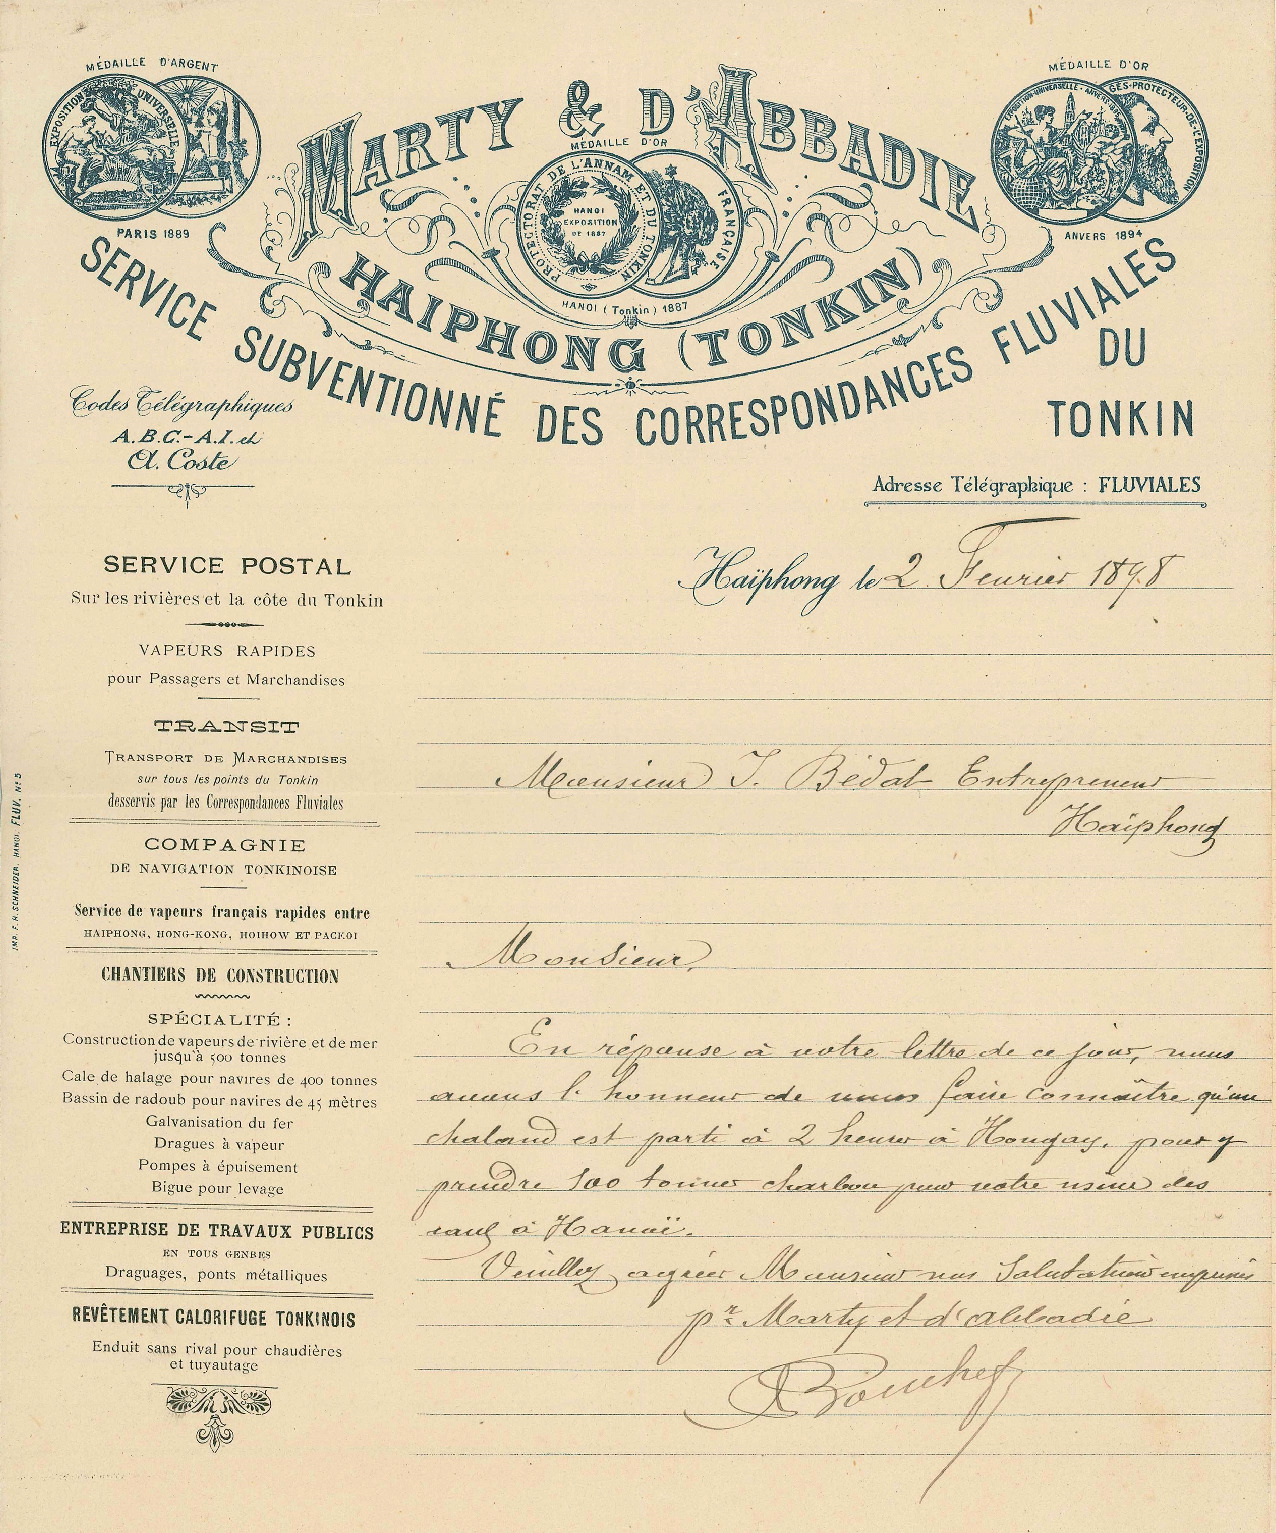 MÉDAILLE D'ARGENT
EXPOSITION UNIVERSELLE
PARIS 1889
MARTY & D'ABBADIE
MÉDAILLE D'OR
PROTECTORAT DE L'ANNAM ET DU TONKIN
HANOI
EXPOSITION
DE 1887
FRANÇAISE
HANOI (Tonkin) 1887
MÉDAILLE D'OR
EXPOSITION-UNIVERSELLE-ANVERS
GES-PROTECTEUR-DE-L'EXPOSITION
ANVERS 1894
HAIPHONG (TONKIN)
SERVICE SUBVENTIONNÉ DES CORRESPONDANCES FLUVIALES
DU
TONKIN
Codes Télégraphiques
A.B.C.-A.I. et
A. Coste
Adresse Télégraphique : FLUVIALES
Haïphong le 2 Fevrier 1898
SERVICE POSTAL
Sur les rivières et la côte du Tonkin
VAPEURS RAPIDES
pour Passagers et Marchandises
TRANSIT
TRANSPORT DE MARCHANDISES
sur tous les points du Tonkin
desservis par les Correspondances Fluviales
COMPAGNIE
DE NAVIGATION TONKINOISE
Service de vapeurs français rapides entre
HAIPHONG, HONG-KONG, HOIHOW ET PACKOI
CHANTIERS DE CONSTRUCTION
SPÉCIALITÉ :
Construction de vapeurs de rivière et de mer
jusqu'à 500 tonnes
Cale de halage pour navires de 400 tonnes
Bassin de radoub pour navires de 45 mètres
Galvanisation du fer
Dragues à vapeur
Pompes à épuisement
Bigue pour levage
ENTREPRISE DE TRAVAUX PUBLICS
EN TOUS GENRES
Draguages, ponts métalliques
REVÊTEMENT CALORIFUGE TONKINOIS
Enduit sans rival pour chaudières
et tuyautage
IMP. F. H. SCHNEIDER, HANOI. FLUV. Nº 5
Monsieur J. Bédat Entrepreneur
Haïphong
Monsieur,
En réponse à votre lettre de ce jour, nous
avons l'honneur de vous faire connaître qu'un
chaland est parti à 2 heures à Hongay, pour y
prendre 100 tonnes charbon pour votre usine des
eaux à Hanoï.
Veuillez agréer Monsieur nos Salutations empressées
pr Marty et d'abbadie